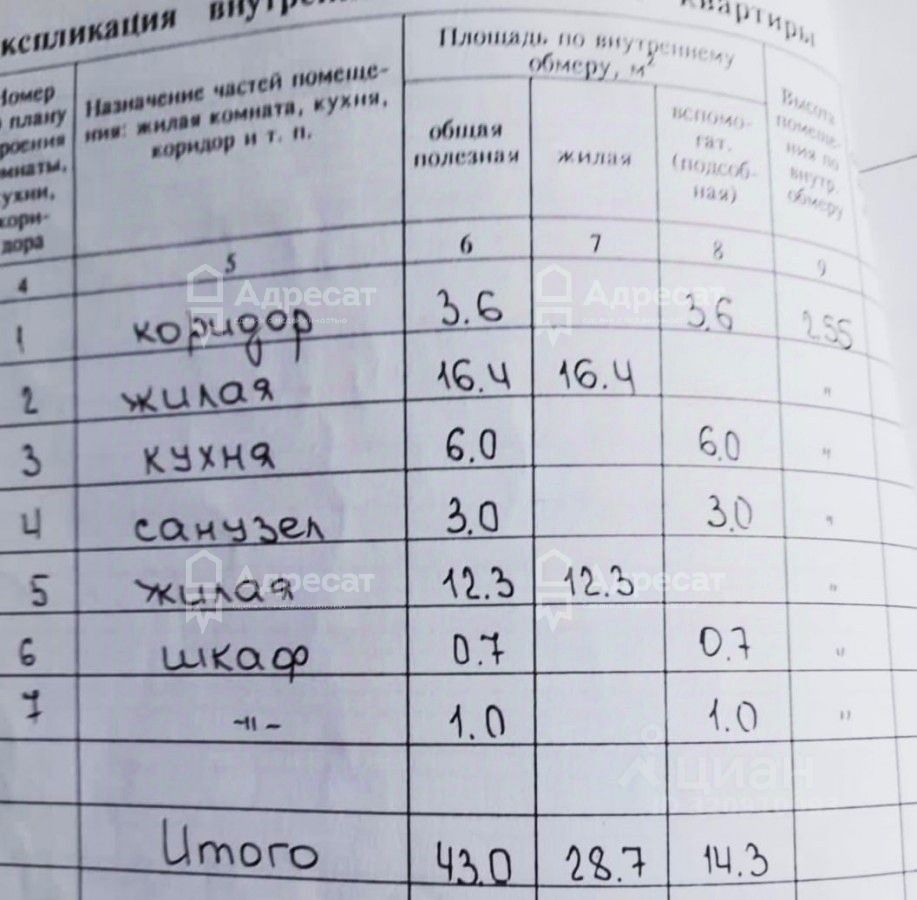 кспликация внутрен квартиры
Номер
плану
роения
мнаты,
ухни,
кори-
дора
Назначение частей помеще-
ния: жилая комната, кухня,
коридор и т. п.
Площадь по внутреннему
обмеру, м²
общая
полезная
жилая
вспомо-
гат.
(подсоб-
ная)
Высота
помеще-
ния по
внутр.
обмеру
4 5 6 7 8 9
1 коридор 3.6 3.6 2.55
2 жилая 16.4 16.4 "
3 кухня 6.0 6.0 "
4 санузел 3.0 3.0 "
5 жилая 12.3 12.3 "
6 шкаф 0.7 0.7 "
7 -"- 1.0 1.0 "
Итого 43.0 28.7 14.3
Адресат
Адресат
Адресат
Адресат
циан